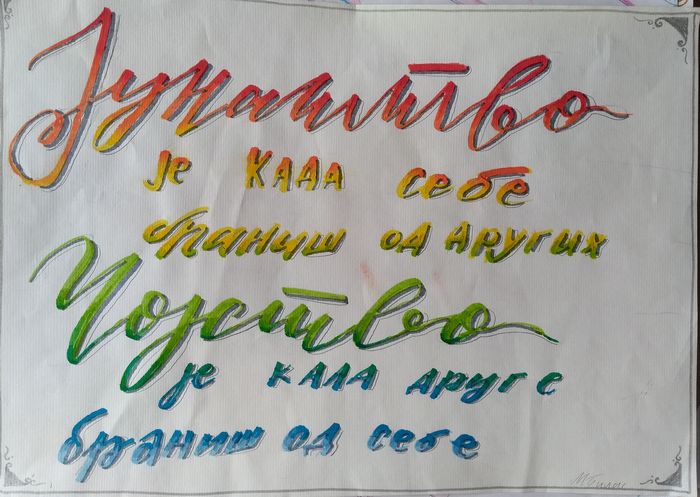 Јунаштво
је када себе
браниш од других
Чојство
је када друге
браниш од себе